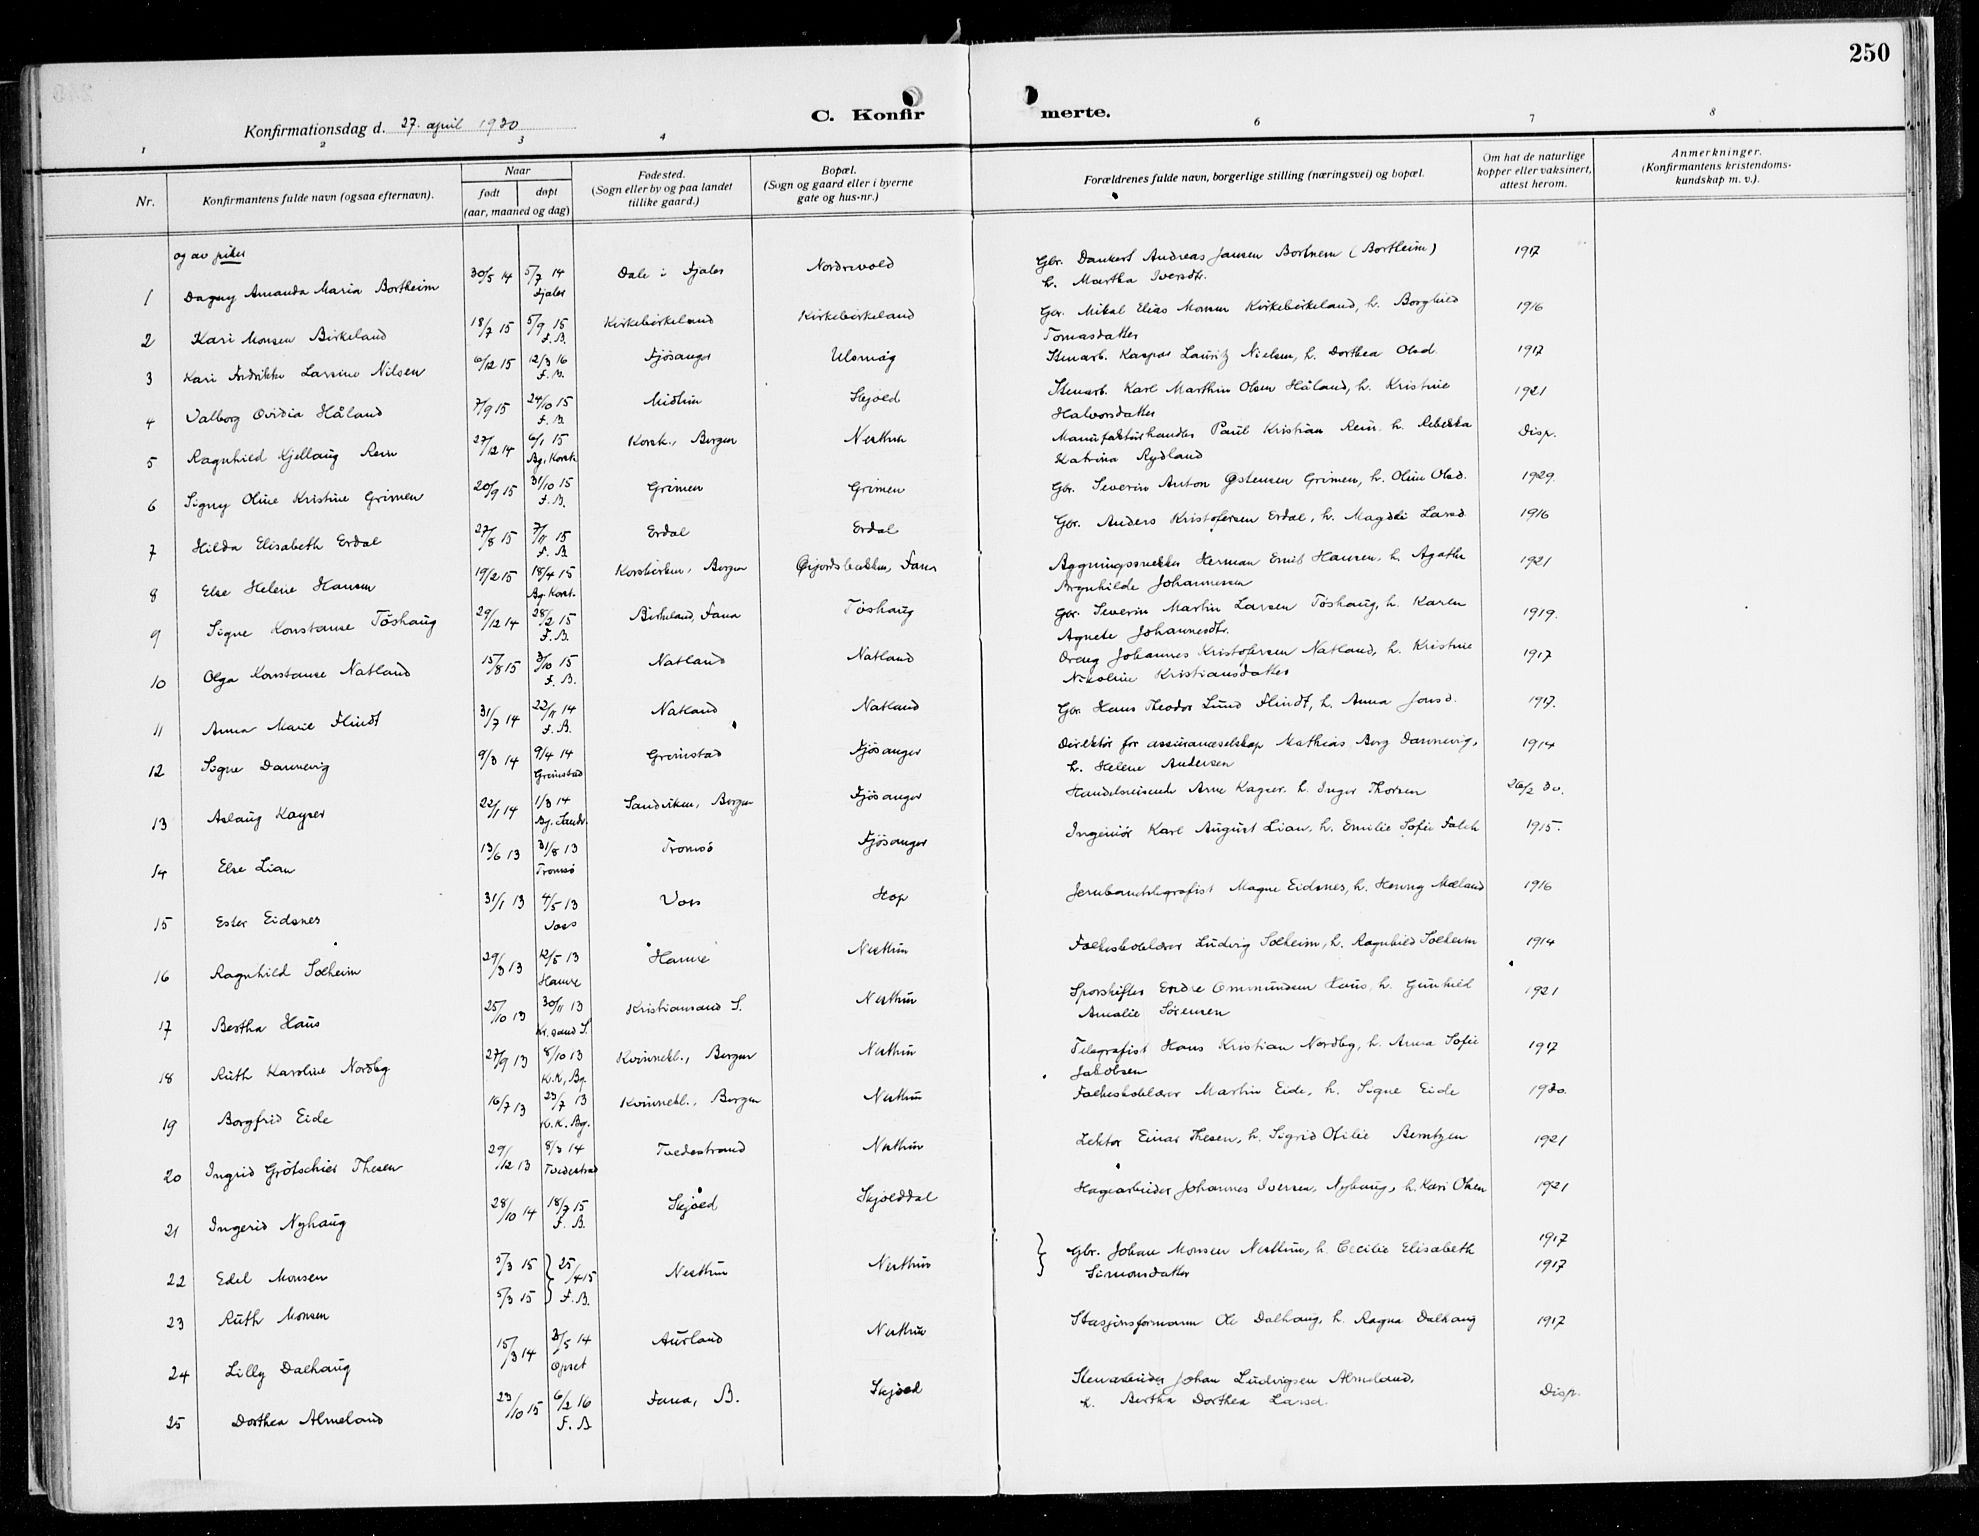 250
C. Konfirmerte.
Konfirmationsdag d. 27. april 1930
1 2 3 4 6 7 8
Nr.
Konfirmantens fulde navn (ogsaa efternavn).
Naar
født døpt
(aar, maaned og dag)
Fødested.
(Sogn eller by og paa landet
tillike gaard.)
Bopæl.
(Sogn og gaard eller i byerne
gate og hus-nr.)
Forældrenes fulde navn, borgerlige stilling (næringsvei) og bopæl.
Om hat de naturlige
kopper eller vaksinert,
attest herom.
Anmerkninger.
(Konfirmantens kristendoms-
kundskap m. v.).
og av piker
1 Dagny Amanda Maria Bortheim 30/5 14 5/7 14 Fjaler Dale i Fjaler Nordrevold Gbr. Dankert Andreas Jansen Bortnem (Bortheim) 1917
h. Martha Iversdtr.
2 Kari Monsen Birkeland 18/7 15 5/9 15 F. B. Kirkebirkeland Kirkebirkeland Gbr. Mikal Elias Monsen Kirkebirkeland, h. Borghild 1916
Tomasdatter
3 Kari Fredrikke Larsine Nilsen 6/12 15 12/3 16 F. B. Fjøsanger Ulsmåg Stenarb. Kaspar Lauritz Nielsen, h. Dorthea Olsd. 1917
4 Valborg Ovidia Håland 7/9 15 24/10 15 F. B. Midtun Skjold Stenarb. Karl Marthin Olsen Håland, h. Kristine 1921
Halvorsdatter
5 Ragnhild Kjellaug Rein 27/12 14 6/1 15 Bg. Korsk. Korsk., Bergen Nesttun Manufakturhandler Paul Kristian Rein, h. Rebekka Disp.
Katrina Rydland
6 Signy Oline Kristine Grimen 20/9 15 31/10 15 F. B. Grimen Grimen Gbr. Severin Anton Østensen Grimen, h. Oline Olsd. 1929.
7 Hilda Elisabeth Erdal 27/8 15 7/11 15 F. B. Erdal Erdal Gbr. Anders Kristofersen Erdal, h. Magdli Larsd 1916
8 Else Helene Hansen 19/2 15 18/4 15 Bg. Korsk. Korskirken, Bergen Øvjordsbakken, Fana Bygningssnekker Herman Emil Hansen, h. Agathe 1921
Brynhilde Johannessen
9 Signe Konstanse Tøshaug 29/12 14 28/2 15 F. B. Birkeland, Fana Tøshaug Gbr. Severin Martin Larsen Tøshaug, h. Karen 1919.
Agnete Johannesdtr.
10 Olga Konstanse Natland 15/8 15 3/10 15 F. B. Natland Natland Dreng Johannes Kristofersen Natland, h. Kristine 1917
Nikoline Kristiansdatter
11 Anna Marie Flindt 31/7 14 22/11 14 F. B. Natland Natland Gbr. Hans Theodor Lund Flindt, h. Anna Jonsd. 1917.
12 Signe Dannevig 9/3 14 9/4 14 Grimstad Grimstad Fjøsanger Direktør for assuranceselskap Mathias Berg Dannevig, 1914
h. Helene Andersen
13 Aslaug Kayser 22/1 14 1/3 14 Bg. Sandv. Sandviken, Bergen Fjøsanger Handelsreisende Arne Kayser, h. Inger Thorsen 26/2 30.
14 Else Lian 13/6 13 31/8 13 Tromsø Tromsø Fjøsanger Ingeniør Karl August Lian, h. Emilie Sofie Falch 1915.
15 Ester Eidsnes 31/1 13 4/5 13 Voss Voss Hop Jernbanetelegrafist Magne Eidsnes, h. Henny Mæland 1916
16 Ragnhild Solheim 29/3 13 12/5 13 Hamre Hamre Nesttun Folkeskolelærer Ludvig Solheim, h. Ragnhild Solheim 1914
17 Bertha Haus 25/10 13 30/11 13 Kr.sand S. Kristiansand S. Nesttun Sporskifter Endre Ommundsen Haus, h. Gunhild 1921
Amalie Sørensen
18 Ruth Karoline Nordbg 27/9 13 8/10 13 K.K., Bg. Kvinnekl., Bergen Nesttun Telegrafist Hans Kristian Nordbg, h. Anna Sofie 1917
Jakobsen
19 Borgfrid Eide 16/7 13 23/7 13 K.K. Bg. Kvinnekl., Bergen Nesttun Folkeskolelærer Martin Eide, h. Signe Eide 1930.
20 Ingrid Grötschier Thesen 29/12 13 8/3 14 Tvedestrad Tvedestrand Nesttun Lektor Einar Thesen, h. Sigrid Otilie Berntzen 1921
21 Ingerid Nyhaug 28/10 14 18/7 15 F. B. Skjold Skjolddal Hagearbeider Johannes Iversen, Nyhaug, h. Kari Olsen 1921
22 Edel Monsen 5/3 15 25/4 15 F. B. Nesttun Nesttun Gbr. Johan Monsen Nesttun, h. Cecilie Elisabeth 1917
Simonsdatter 1917
23 Ruth Monsen 5/3 15
24 Lilly Dalhaug 15/3 14 3/5 14 Opset Aurland Nesttun Stasjonsformann Ole Dalhaug, h. Ragna Dalhaug 1917
25 Dorthea Almeland 23/10 15 6/2 16 F. B Fana, B. Skjold Stenarbeider Johan Ludvigsen Almeland, Disp.
h. Bertha Dorthea Larsd.